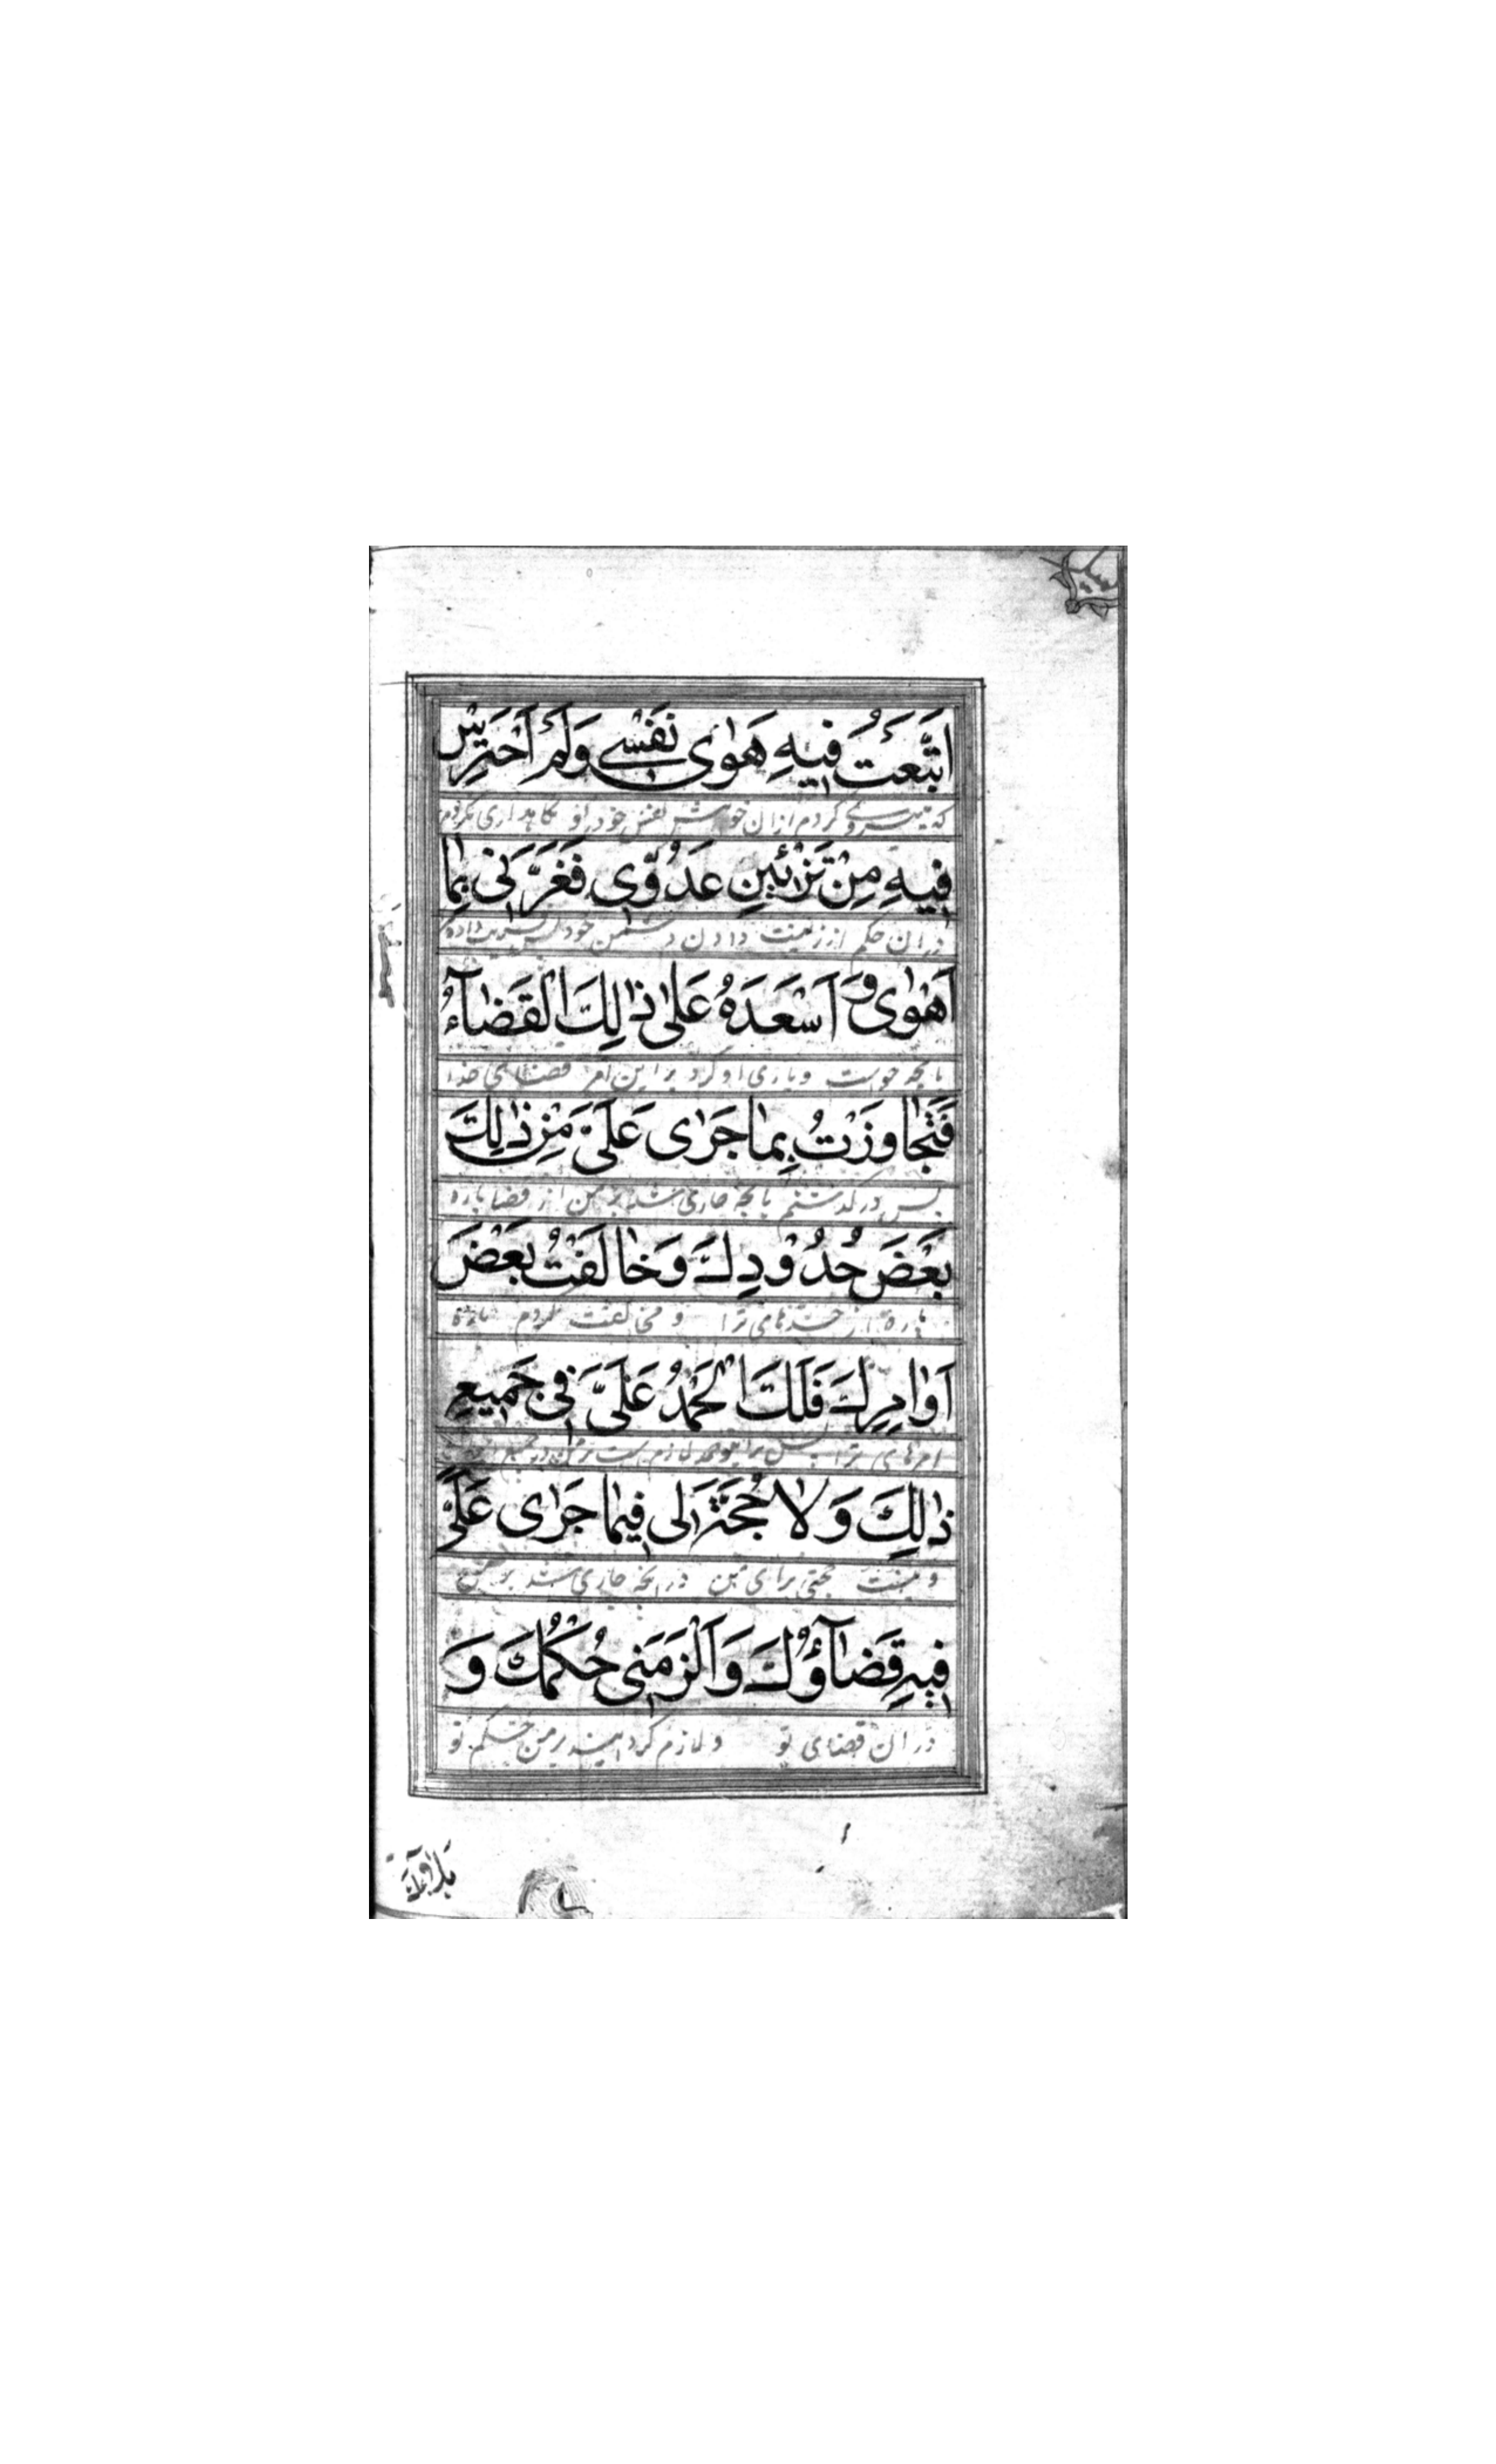 اتَّبَعْتُ فِيهِ هَوٰى نَفْسِي وَلَمْ اَحْتَرِسْ
که پیروی کردم از ان خواهش نفس خود را و نکاهداری نکردم
فِيهِ مِنْ تَزْئِينِ عَدُوِّي فَغَرَّنِي بِمٰا
در ان حکم از زینت دادن دشمن خود پس فریب داده
اَهْوٰى وَ اَسْعَدَهُ عَلىٰ ذٰلِكَ الْقَضٰآءُ
بانچه خواست و یاری او کرد بر این امر قضاهای خدا
فَتَجٰاوَزْتُ بِمٰا جَرٰى عَلَيَّ مِنْ ذٰلِكَ
پس در کذشتم بانچه جاری شد بر من از قضا پاره
بَعْضَ حُدُوْدِكَ وَخٰالَفْتُ بَعْضَ
پاره از حدهای ترا و مخالفت کردم پاره
اَوٰامِرِكَ فَلَكَ الْحَمْدُ عَلَيَّ فِي جَمِيعِ
امرهای ترا پس ترا حمد لازم است بر من در جمیع
ذٰلِكَ وَلاٰ حُجَّةَ لِي فِيمٰا جَرٰى عَلَيَّ
و نیست حجتی برای من در انچه جاری شد بر من
فِيهِ قَضٰآؤُكَ وَاَلْزَمَنِي حُكْمُكَ وَ
در ان قضای تو و لازم کردانید بر من حکم تو
بلاؤك